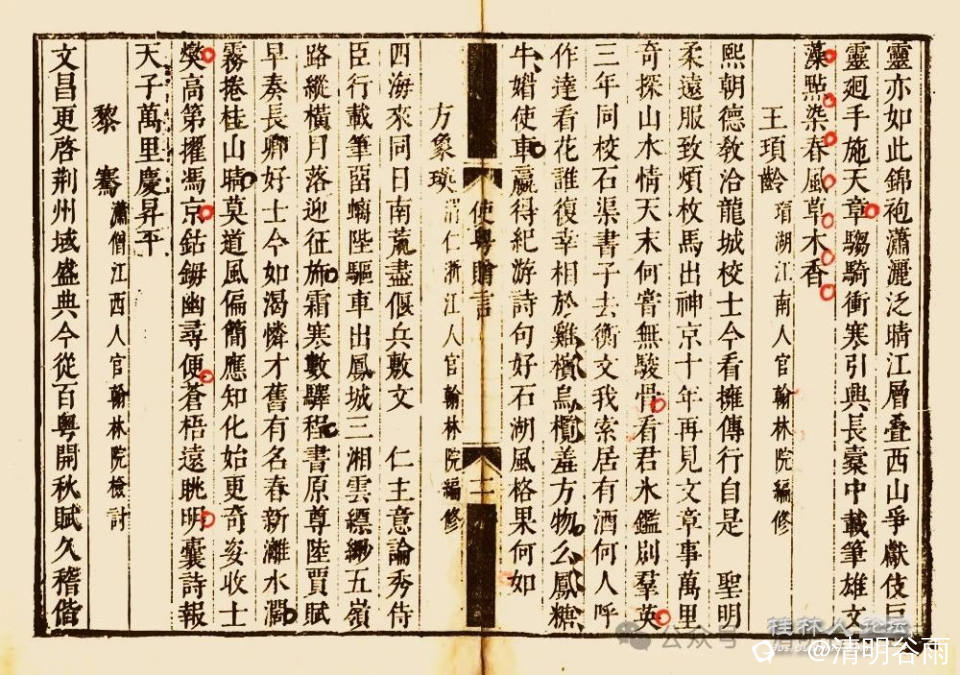 靈亦如此錦袍瀟灑泛晴江層疊西山爭獻伎巨
靈廻手施天章騶騎衝寒引興長橐中載筆雄文
藻點染春風草木香
王頊齡 瑁湖江南人官翰林院編修
熙朝德教洽龍城校士今看擁傳行自是 聖明
柔遠服致煩枚馬出神京十年再見文章事萬里
奇探山水情天末何嘗無駿骨看君氷鑑刷羣英
三年同校石渠書子去衡文我索居有酒何人呼
作達看花誰復幸相於雞檳烏欖羞方物么鳳糖
牛婚使車贏得紀游詩句好石湖風格果何如
使粤贈言
二
方象瑛 渭仁浙江人官翰林院編修
四海來同日南荒盡偃兵敷文 仁主意論秀侍
臣行載筆留螭陛驅車出鳳城三湘雲縹緲五嶺
路縱橫月落迎征旆霜寒數驛程書原尊陸賈賦
早奏長卿好士今如渴憐才舊有名春新灕水濶
霧捲桂山晴莫道風偏簡應知化始更奇姿收士
燮高第擢馮京鈷鉧幽尋便蒼梧遠眺明囊詩報
天子萬里慶昇平
黎騫 瀟僧江西人官翰林院檢討
文昌更啓荆州域盛典今從百粤開秋賦久稽偕
公众号
桂林人论坛
@清明谷雨